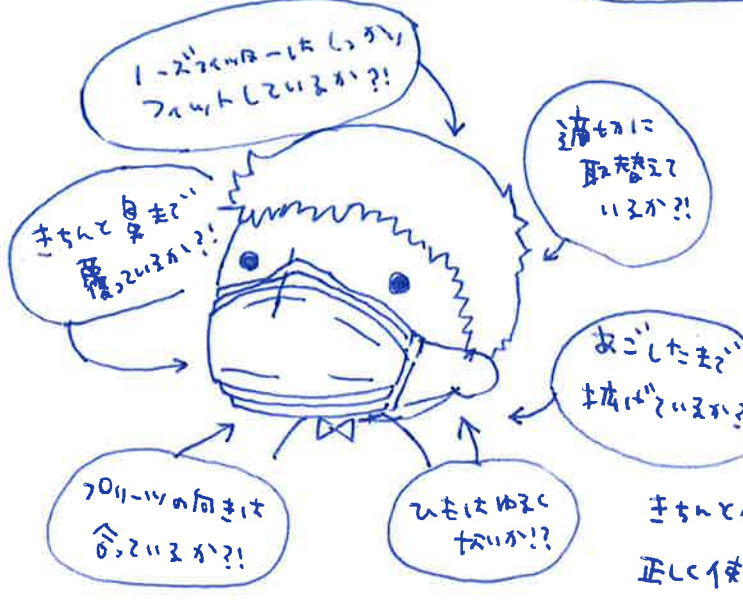 ノーズフィッターはしっかり
フィットしているか?!
適切に
取替えて
いるか?!
きちんと鼻まで
覆っているか?!
あごしたまで
拡げているか?
プリーツの向きは
合っているか?!
ひもはゆるく
ないか!?
きちんと
正しく使